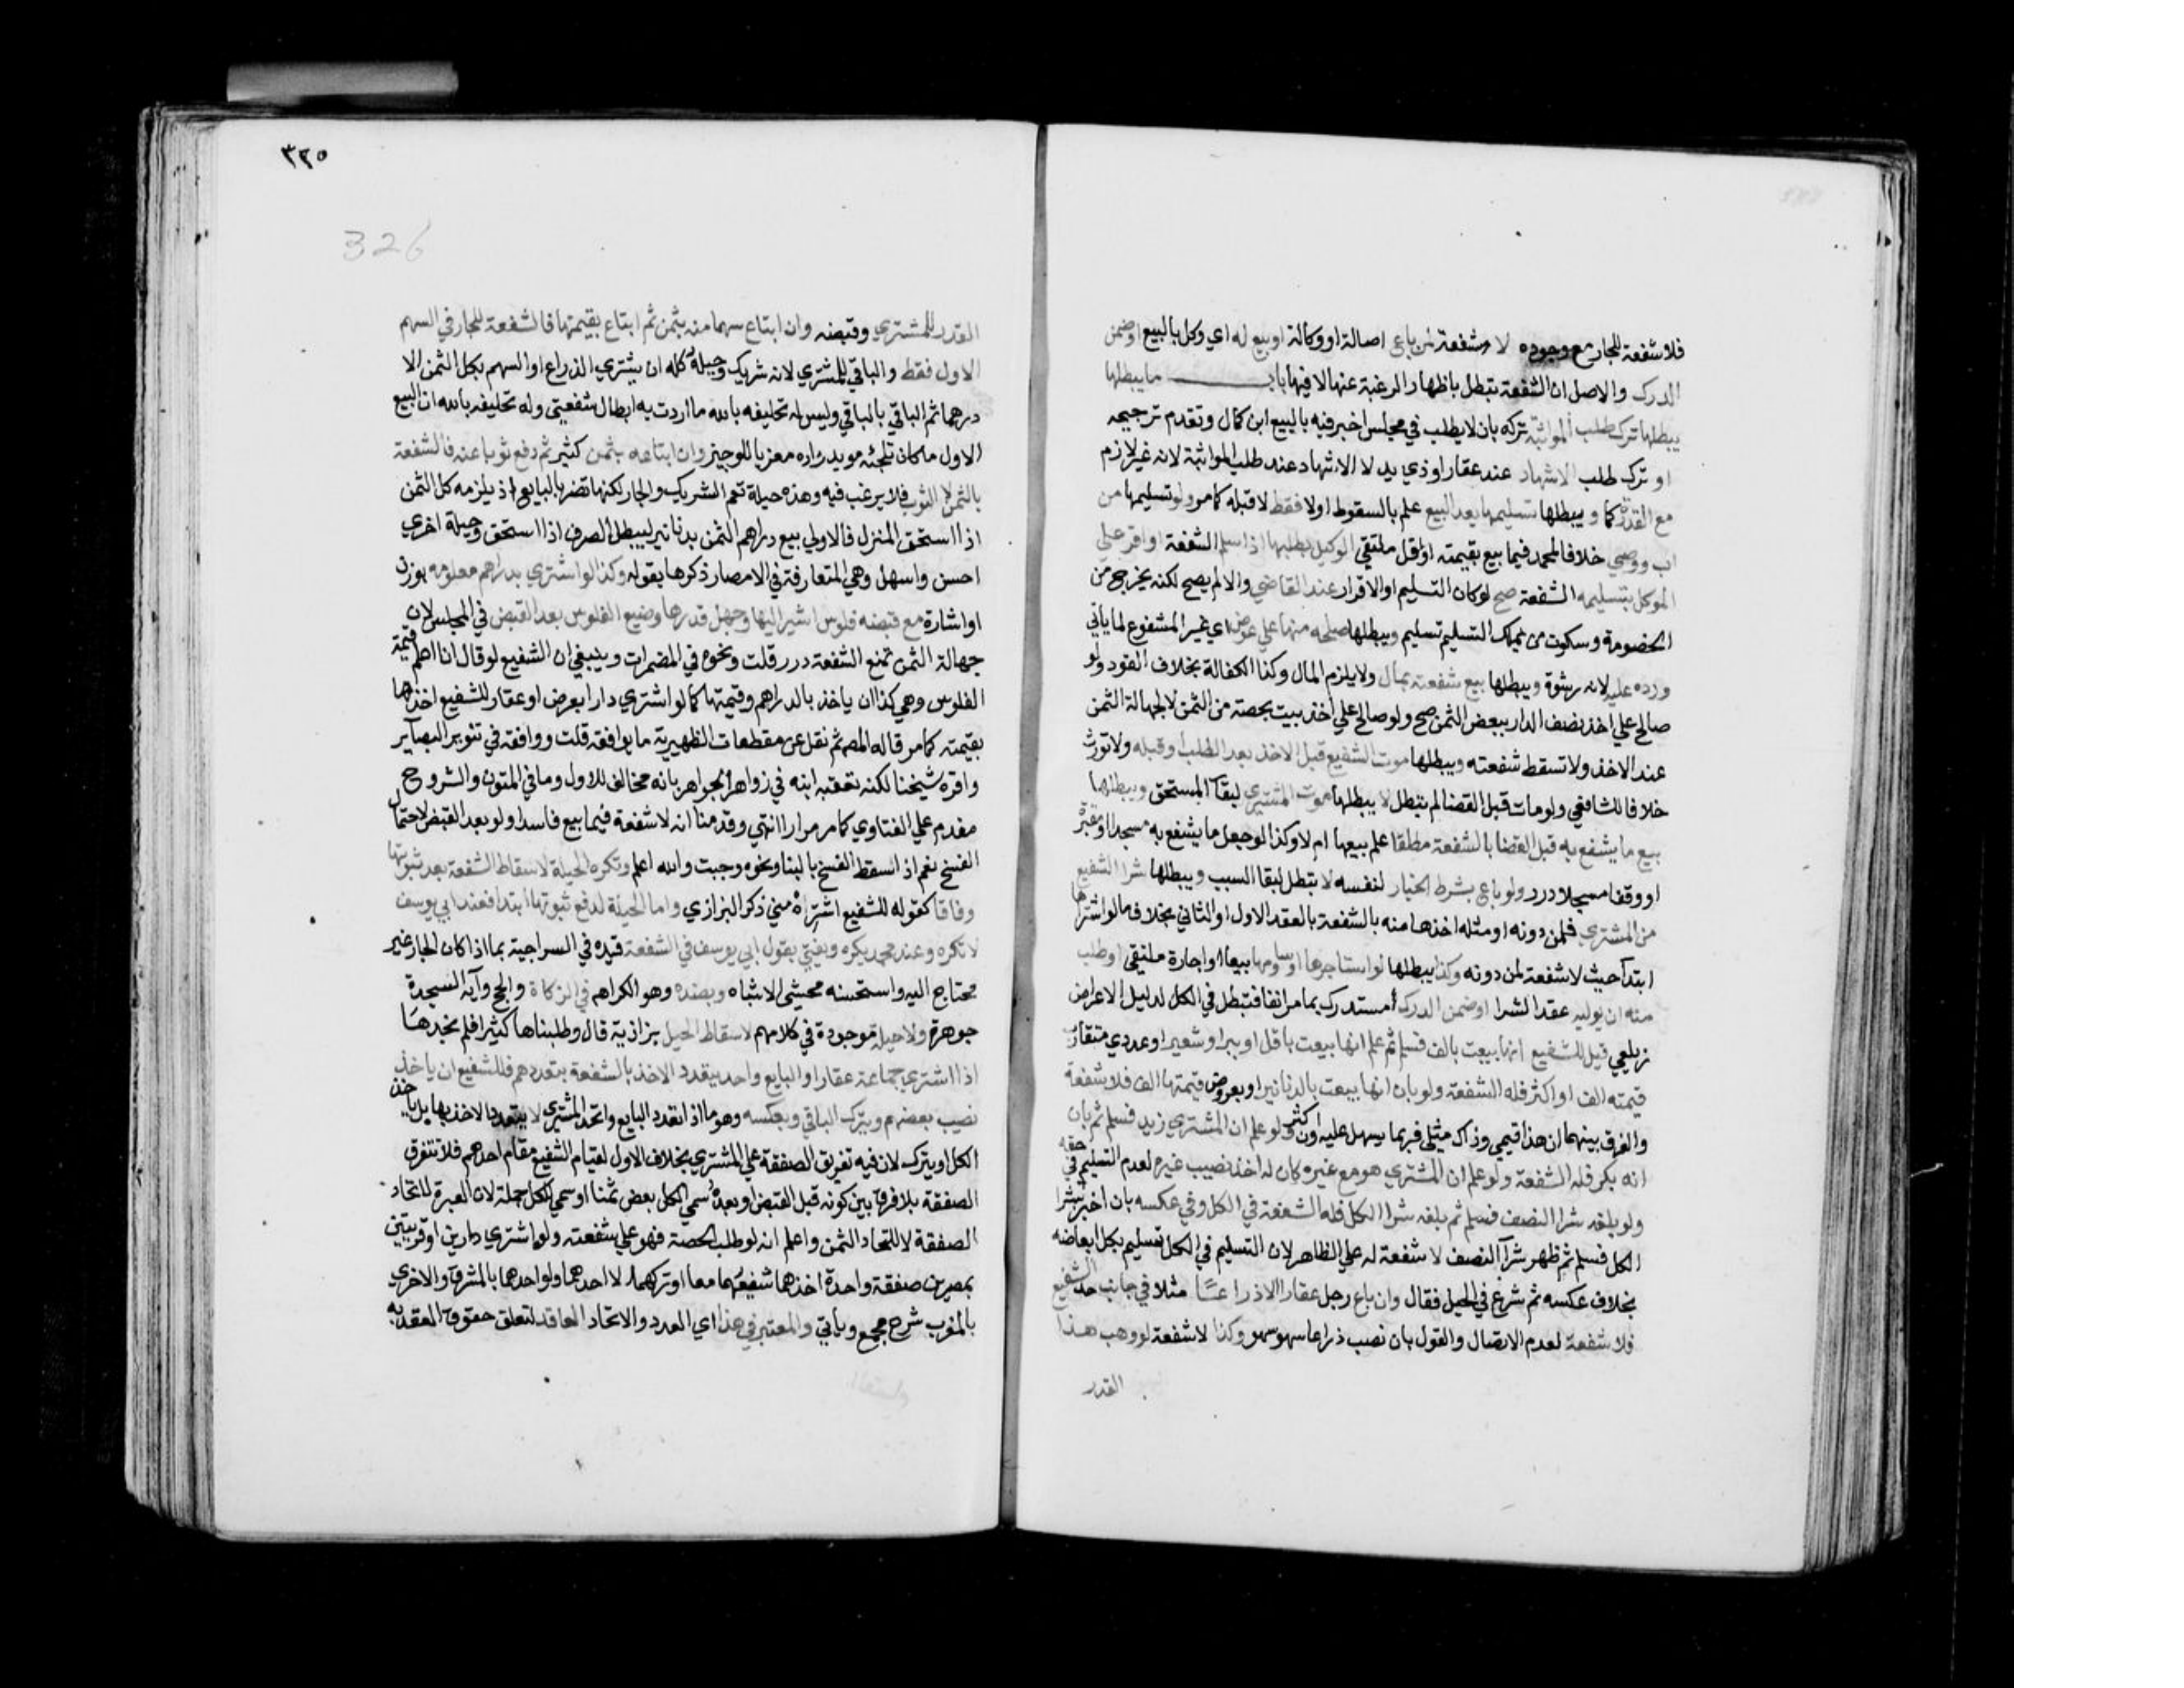 فلا شفعة للجار مع وجوده لا شفعة لمن باع اصالة او وكالة او بيع له اي وكل بالبيع او ضمن
الدرك والاصل ان الشفعة تبطل باظهار الرغبة عنها لا فيها باب ما يبطلها
يبطلها ترك طلب المواثبة تركه بان لا يطلب في مجلس اخبر فيه بالبيع ابن كمال وتقدم ترجيحه
او ترك طلب الاشهاد عند عقار او ذي يد لا الاشهاد عند طلب المواثبة لانه غير لازم
مع القدرة كما و يبطلها تسليمها بعد البيع علم بالسقوط اولا فقط لا قبله كما مر ولو تسليمها من
اب ووصي خلافا لمحمد فيما بيع بقيمته او اقل ملتقي الوكيل بطلبها اذا سلم الشفعة او اقر علي
الموكل بتسليمه الشفعة صح لو كان التسليم او الاقرار عند القاضي والا لم يصح لكنه يخرج من
الخصومة وسكوت من يملك التسليم تسليم ويبطلها صلحه منها علي عوض اي غير المشفوع لما ياتي
ورده عليه لانه رشوة ويبطلها بيع شفعته بمال ولا يلزم المال وكذا الكفالة بخلاف القود ولو
صالح علي اخذ نصف الدار ببعض الثمن صح ولو صالح علي اخذ بيت بحصته من الثمن لا لجهالة الثمن
عند الاخذ ولا تسقط شفعته ويبطلها موت الشفيع قبل الاخذ بعد الطلب او قبله ولا تورث
خلافا للشافعي ولو مات قبل القضا لم تبطل لا يبطلها موت المشتري لبقآ المستحق ويبطلها
بيع ما يشفع به قبل القضا بالشفعة مطلقا علم ببيعها ام لا وكذا لو جعل ما يشفع به مسجدا او مقبرة
او وقفا مسجلا درر ولو باع بشرط الخيار لنفسه لا تبطل لبقا السبب ويبطلها شرا الشفيع
من المشتري فلمن دونه او مثله اخذها منه بالشفعة بالعقد الاول او الثاني بخلاف ما لو اشتراها
ابتدآ حيث لا شفعة لمن دونه وكذا يبطلها لو استاجرها او ساومها بيعا او اجارة ملتقي او طلب
منه ان يوليه عقد الشرا او ضمن الدرك مستدرك بما مر انفا فتبطل في الكل لدليل الاعراض
زيلعي قيل للشفيع انها بيعت بالف فسلم ثم علم انها بيعت باقل او ببر او شعير او عددي متقارب
قيمته الف او اكثر فله الشفعة ولو بان انها بيعت بالدنانير او بعروض قيمتها الف فلا شفعة
والفرق بينهما ان هذا قيمي وذاك مثلي فربما يسهل عليه وان كثر ولو علم ان المشتري زيد فسلم ثم بان
انه بكر فله الشفعة ولو علم ان المشتري هو مع غيره كان له اخذ نصيب غيره لعدم التسليم في حقه
ولو بلغه شرا النصف فسلم ثم بلغه شرا الكل فله الشفعة في الكل وفي عكسه بان اخبر بشرا
الكل فسلم ثم ظهر شرآ النصف لا شفعة له علي الظاهر لان التسليم في الكل تسليم بكل ابعاضه
بخلاف عكسه ثم شرع في الحيل فقال وان باع رجل عقارا الا ذراعا مثلا في جانب حد الشفيع
فلا شفعة لعدم الاتصال والقول بان نصب ذراعا سهو سهو وكذا لا شفعة لو وهب هذا
القدر
٣٢٥
326
القدر للمشتري وقبضه وان ابتاع سهما منه بثمن ثم ابتاع بقيمتها فالشفعة للجار في السهم
الاول فقط والباقي للمشتري لانه شريك وحيلة كله ان يشتري الذراع او السهم بكل الثمن الا
درهما ثم الباقي بالباقي وليس له تحليفه بالله ما اردت به ابطال شفعتي وله تحليفه بالله ان البيع
الاول ما كان تلجئه مويد زاده معزيا للوجيز وان ابتاعه بثمن كثير ثم دفع ثوبا عنه فالشفعة
بالثمن لا الثوب فلا يرغب فيه وهذه حيلة تعم الشريك والجار لكنها تضر بالبايع اذ يلزمه كل الثمن
اذا استحق المنزل فالاولي بيع دراهم الثمن بدنانير ليبطل الصرف اذا استحق وحيلة اخري
احسن واسهل وهي المتعارفة في الامصار ذكرها بقوله وكذا لو اشتري بدراهم معلومه بوزن
او اشارة مع قبضه فلوس اشير اليها وجهل قدرها وضيع الفلوس بعد القبض في المجلس لان
جهالة الثمن تمنع الشفعة درر قلت ونحوه في المضمرات وينبغي ان الشفيع لو قال انا اعلم قيمة
الفلوس وهي كذا ان ياخذ بالدراهم وقيمتها كما لو اشتري دارا بعرض او عقار للشفيع اخذها
بقيمته كما مر قاله المص ثم نقل عن مقطعات الظهيرية ما يوافقه قلت ووافقه في تنوير البصآير
واقره شيخنا لكنه تعقبه ابنه في زواهر الجواهر بانه مخالف للاول وما في المتون والشروح
مقدم علي الفتاوي كما مر مرارا انتهي وقدمنا انه لا شفعة فيما بيع فاسدا ولو بعد القبض لاحتمال
الفسخ نعم اذ اسقط الفسخ بالبنا ونحوه وجبت والله اعلم وتكره الحيلة لاسقاط الشفعة بعد ثبوتها
وفاقا كقوله للشفيع اشتره مني ذكر البزازي واما الحيلة لدفع ثبوتها ابتدا فعند ابي يوسف
لا تكره وعند محمد يكره ويفتي بقول ابي يوسف في الشفعة قيده في السراجية بما اذا كان الجار غير
محتاج اليه واستحسنه محشي الاشباه وبضده وهو الكراهم في الزكاة والحج وآية السجدة
جوهرة ولا حيلة موجودة في كلامهم لاسقاط الحيل بزازية قال وطلبناها كثيرا فلم نجدها
اذا اشتري جماعة عقارا والبايع واحد يتعدد الاخذ بالشفعة بتعددهم فللشفيع ان ياخذ
نصيب بعضهم ويترك الباقي وبعكسه وهو ما اذا تعدد البايع واتحد المشتري لا يتعدد الاخذ بها بل ياخذ
الكل او يترك لان فيه تفريق الصفقة علي المشتري بخلاف الاول لقيام الشفيع مقام احدهم فلا تتفرق
الصفقة بلا فرق بين كونه قبل القبض او بعده سمي لكل بعض ثمنا او سمي للكل جملة لان العبرة لاتحاد
الصفقة لا لاتحاد الثمن واعلم انه لو طلب الحصة فهو علي شفعته ولو اشتري دارين او قريتين
بمصرين صفقة واحدة اخذهما شفيعهما معا او تركهما لا احدهما ولو احدهما بالمشرق والاخري
بالمغرب شرح مجمع وياتي والمعتبر في هذا اي العدد والاتحاد العاقد لتعلق حقوق العقد به